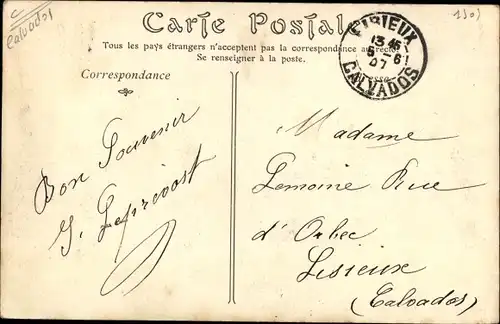 Calvados
Carte Postale
Tous les pays étrangers n'acceptent pas la correspondance au recto.
Se renseigner à la poste.
Correspondance
LISIEUX
CALVADOS
Bon Souvenir
G. Leprévost
Madame
Lemoine Rue
d'Orbec
Lisieux
(Calvados)